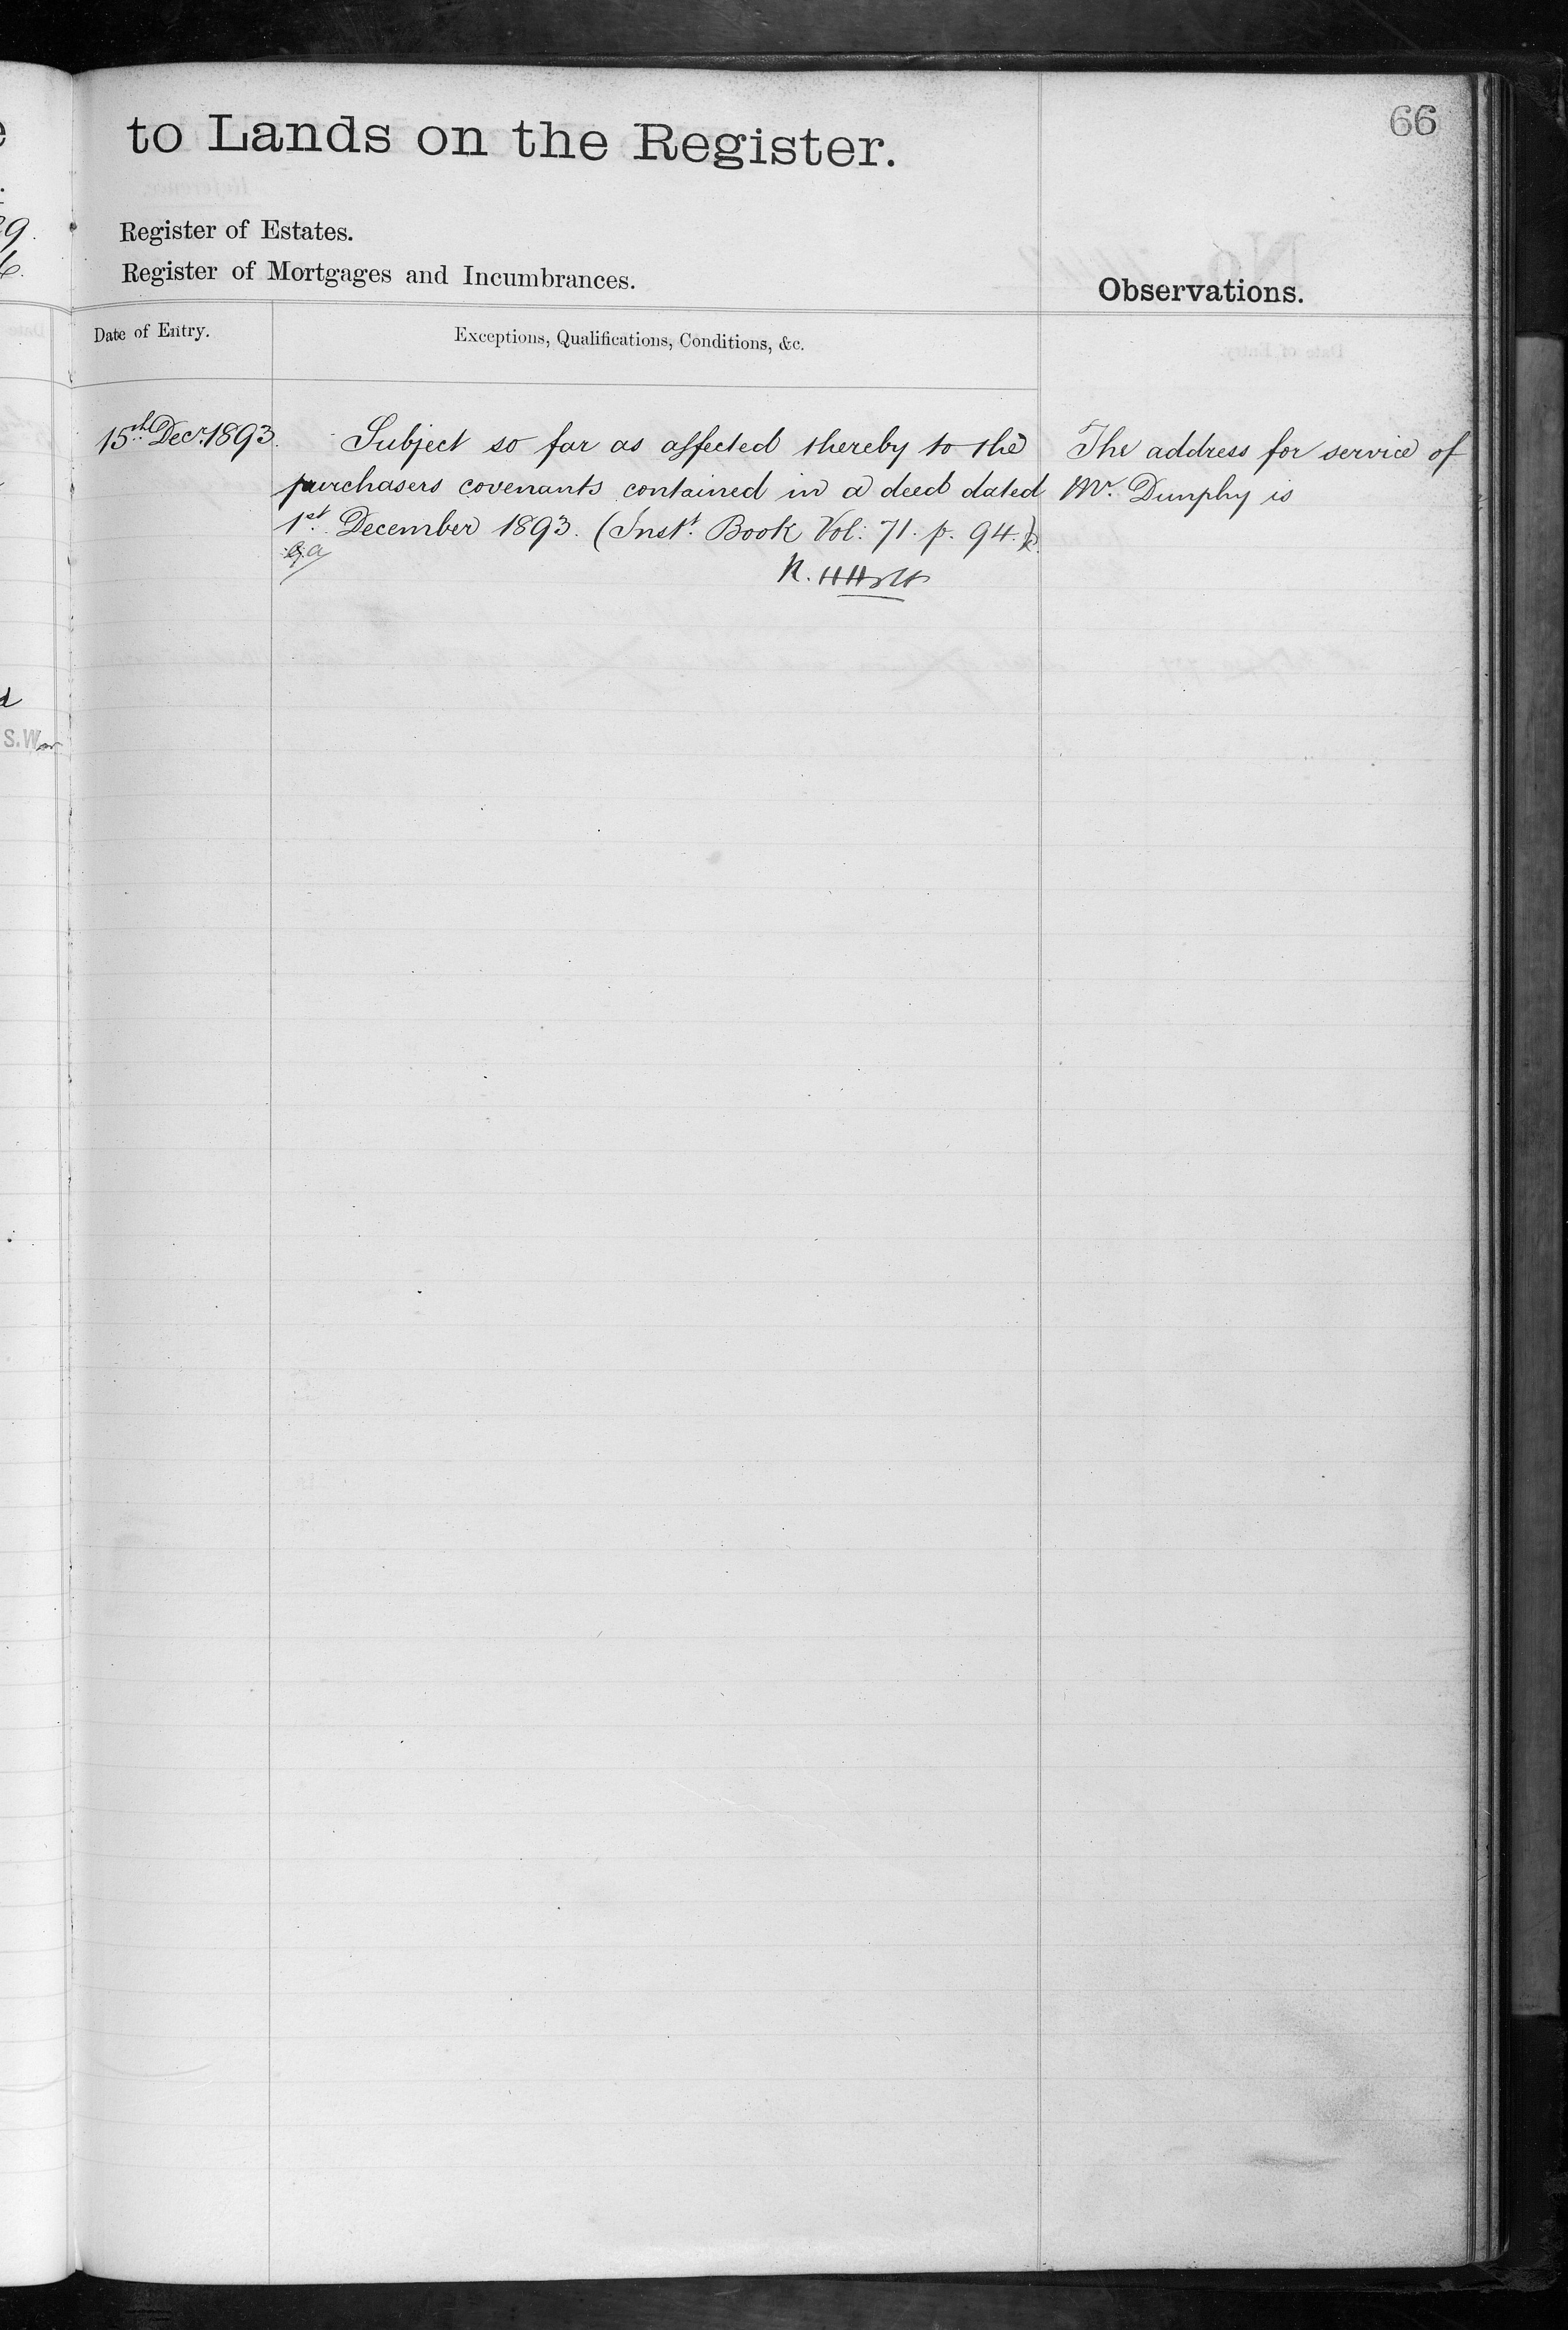 66
to Lands on the Register.
Register of Estates.
Register of Mortgages and Incumbrances.
Observations.
Date of Entry.
Exceptions, Qualifications, Conditions, &c.
15th Decr. 1893.
Subject so far as affected thereby to the
purchasers covenants contained in a deed dated
1st. December 1893. (Inst. Book Vol: 71. p. 94.)
The address for service of
Mr. Dunphy is
S.W